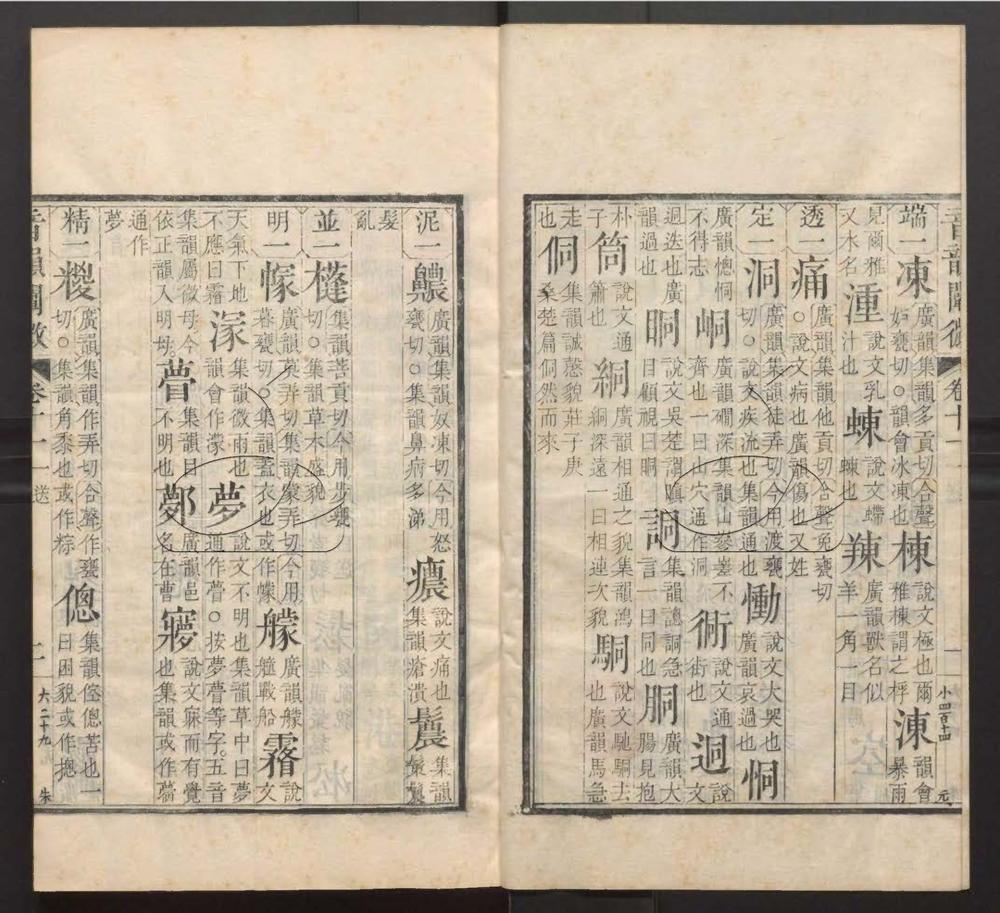 音韻闡微 卷十一 送 一 小四百十四 元
端一 凍 廣韻集韻多貢切合聲妒甕切○韻會冰凍也 棟 說文極也爾雅棟謂之桴 涷 韻會暴雨
見爾雅又水名 湩 說文乳汁也 蝀 說文螮蝀也 䍶 廣韻獸名似羊一角一目
透一 痛 廣韻集韻他貢切合聲兔甕切○說文病也廣韻傷也又姓
定一 洞 廣韻集韻徒弄切今用渡甕切○說文疾流也集韻通也 慟 說文大哭也廣韻哀過也 恫
廣韻憁恫不得志 峒 廣韻磵深集韻山參差不齊也一曰山穴通作洞 衕 說文通街也 迵 說文
迵迭也廣韻過也 眮 說文吳楚謂瞋目顧視曰眮 詷 集韻謥詷急言一曰同也 胴 廣韻大腸見抱
朴子 筒 說文通簫也 絧 廣韻相通之貌集韻鴻絧深遠一曰相連次貌 駧 說文馳駧去也廣韻馬急
走也 侗 集韻誠慤貌莊子庚桑楚篇侗然而來
泥一 齈 廣韻集韻奴凍切今用怒甕切○集韻鼻病多涕 癑 說文痛也集韻瘡潰 鬞 集韻鬤鬞
髮亂
並一 槰 集韻菩貢切今用步甕切○集韻草木盛貌
明一 幏 廣韻莫弄切集韻蒙弄切今用暮甕切○集韻蓋衣也或作幪 艨 廣韻艨艟戰船 霿 說文
天氣下地不應曰霿 冡 集韻微雨也韻會作濛 夢 說文不明也集韻草中曰夢通作瞢○按夢瞢等字五音
集韻屬微母今依正韻入明母 瞢 集韻目不明也 鄸 廣韻邑名在曹 寢 說文寐而有覺也集韻或作
通作夢
精一 糉 廣韻集韻作弄切合聲作甕切○集韻角黍也或作粽 傯 集韻倥傯苦也一曰困貌或作摠
音韻闡微 卷十一 送 二 六二十九 朱